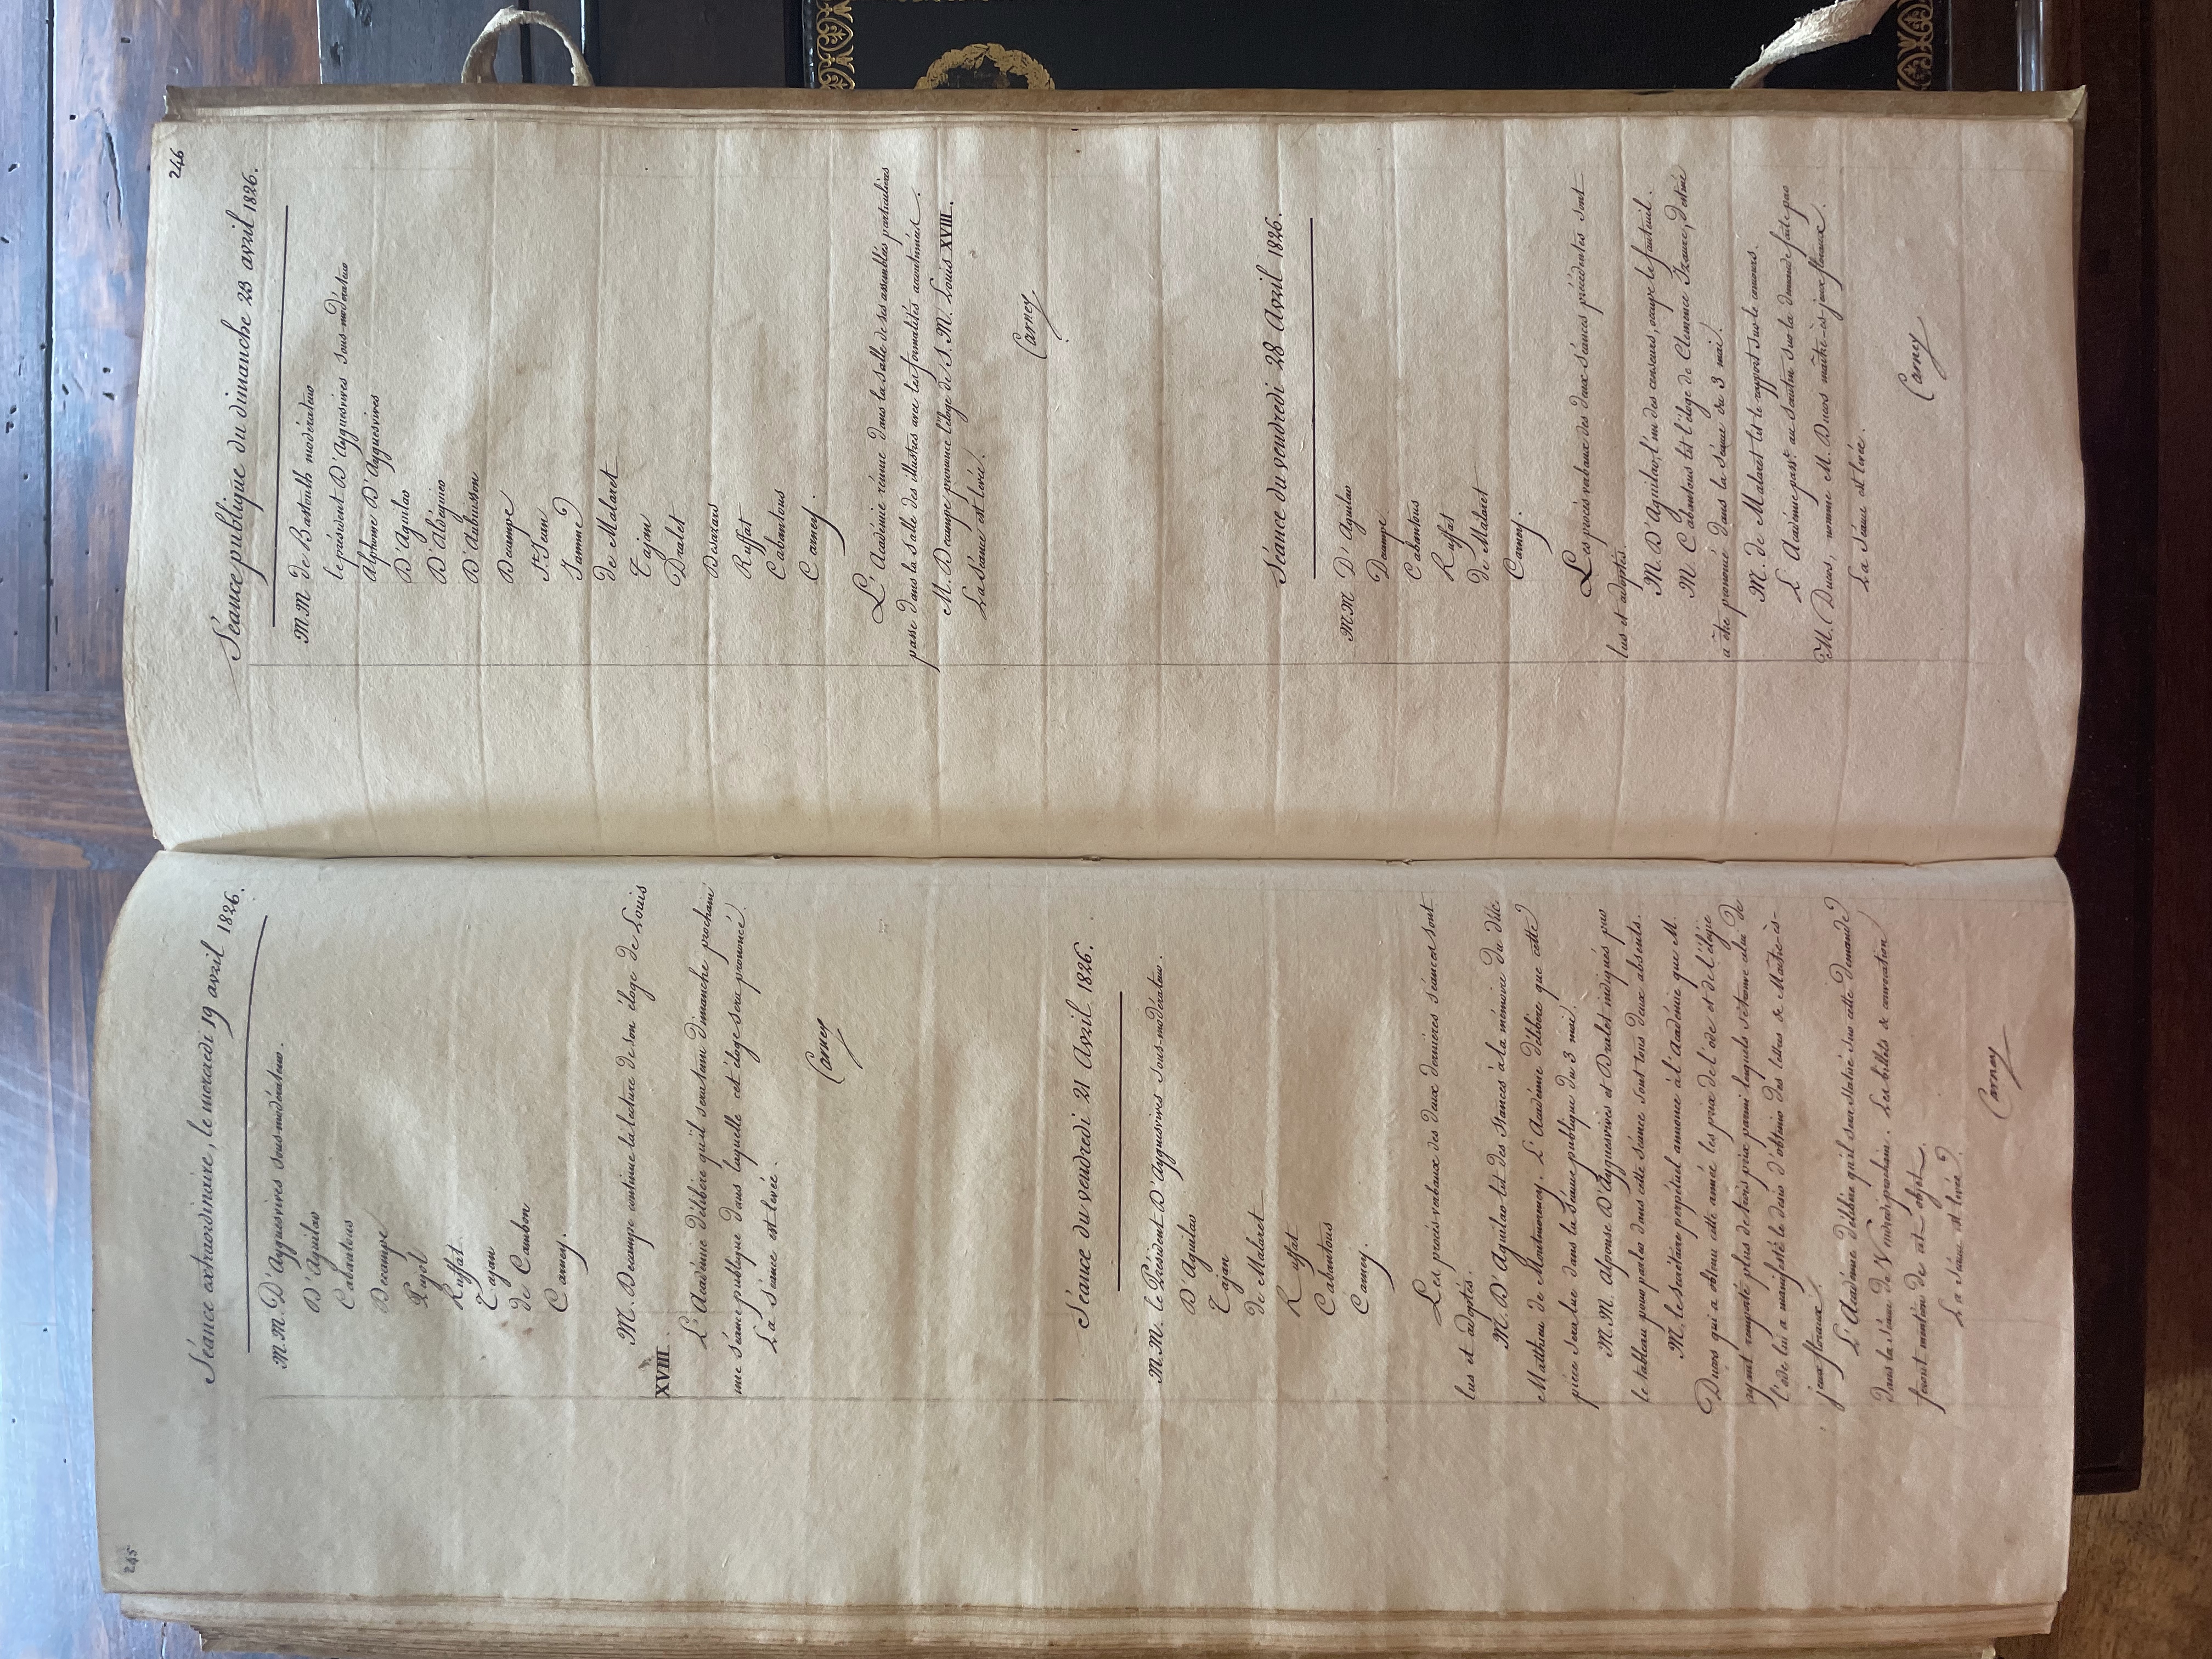 245
Séance extraordinaire, le mercredi 19 avril 1826.
M.M. D'Ayguesvives sous-modérateur.
D'Aguilar
Cabantous
Decampe
Pujol
Ruffat
Tajan
de Cambon
Carney.
M. Decampe continue la lecture de son éloge de Louis
XVIII.
L'Académie délibère qu'il sera tenu dimanche prochain
une séance publique dans laquelle cet éloge sera prononcé.
La séance est levée.
Carney
Séance du vendredi 21 Avril 1826.
M.M. le Président D'Ayguesvives sous-modérateur.
D'Aguilar
Tajan
de Malaret
Ruffat
Cabantous
Carney.
Les procès-verbaux des deux dernières séances sont
lus et adoptés.
M. D'Aguilar lit des stances à la mémoire du duc
Matthieu de Montmorency. L'Académie délibère que cette
pièce sera lue dans la séance publique du 3 mai.
M.M. Alfonse D'Ayguesvives et Dralet indiqués par
le tableau pour parler dans cette séance sont tous deux absents.
M. le secrétaire perpétuel annonce à l'Académie que M.
Ducos qui a obtenu cette année les prix de l'ode et de l'élégie
ayant remporté plus de trois prix parmi lesquels se trouve celui de
l'ode lui a manifesté le désir d'obtenir des lettres de Maître-ès-
jeux floraux.
L'Académie délibère qu'il sera statué sur cette demande
dans la séance de Vendredi prochain. Les billets de convocation
feront mention de cet objet.
La séance est levée.
Carney
246
Séance publique du dimanche 23 avril 1826.
M.M de Bastoulh modérateur
le président D'Ayguesvives sous-modérateur
Alphonse D'Ayguesvives
D'Aguilar
D'Aldéguier
D'Aubuisson
Decampe
St. Jean
Jamme
de Malaret
Tajan
Dralet
Desazars
Ruffat
Cabantous
Carney.
L'Académie réunie dans la salle de ses assemblées particulières
passe dans la salle des illustres avec les formalités accoutumées.
M. Decampe prononce l'éloge de S. M. Louis XVIII.
La séance est levée.
Carney
Séance du vendredi 28 Avril 1826.
M.M D'Aguilar
Decampe
Cabantous
Ruffat
de Malaret
Carney.
Les procès verbaux des deux séances précédentes sont
lus et adoptés.
M. D'Aguilar, l'un des censeurs, occupe le fauteuil.
M. Cabantous lit l'éloge de Clémence Isaure, destiné
à être prononcé dans la séance du 3 mai.
M. de Malaret lit le rapport sur le concours.
L'Académie passt. au scrutin sur la demande faite par
M. Ducos, nomme M. Ducos maître-ès-jeux floraux.
La séance est levée.
Carney